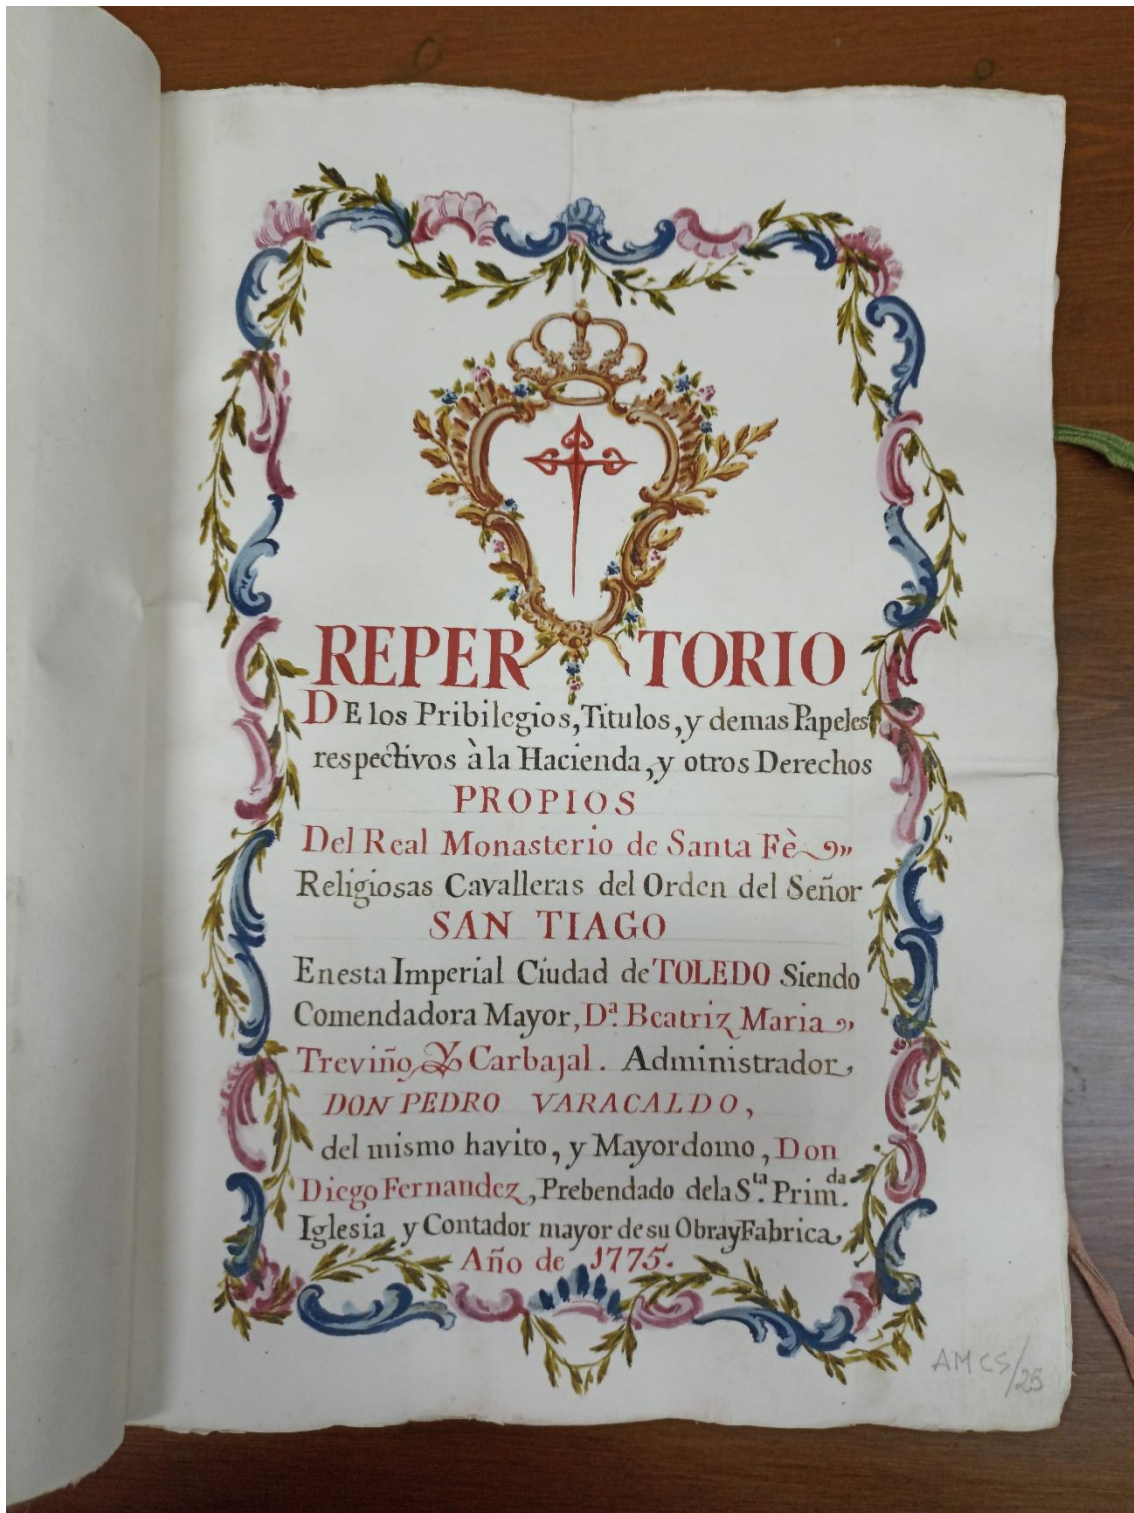 REPERTORIO
DE los Pribilegios, Titulos, y demas Papeles
respectivos à la Hacienda, y otros Derechos
PROPIOS
Del Real Monasterio de Santa Fè
Religiosas Cavalleras del Orden del Señor
SAN TIAGO
En esta Imperial Ciudad de TOLEDO Siendo
Comendadora Mayor, D.ª Beatriz Maria
Treviño Y Carbajal. Administrador,
DON PEDRO VARACALDO,
del mismo havito, y Mayordomo, Don
Diego Fernandez, Prebendado dela S.ta Prim.da
Iglesia y Contador mayor de su Obray Fabrica,
Año de 1775.
AMCS/25